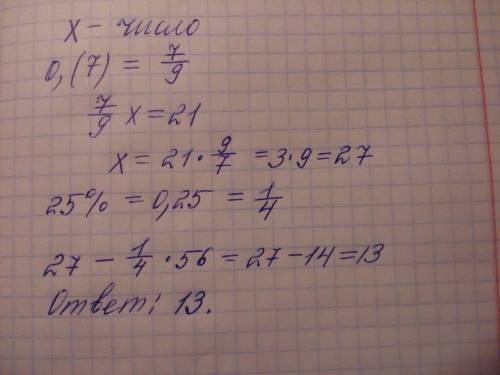 x - число
0,(7) = 7/9
7/9 x = 21
x = 21 · 9/7 = 3 · 9 = 27
25% = 0,25 = 1/4
27 - 1/4 · 56 = 27 - 14 = 13
Ответ: 13.